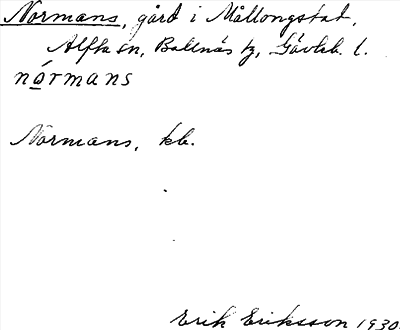 Normans, gård i Mållongstad,
Alfta sn, Bollnäs tg, Gävleb. l.
nórmans
Normans, kb.
Erik Eriksson 1930.